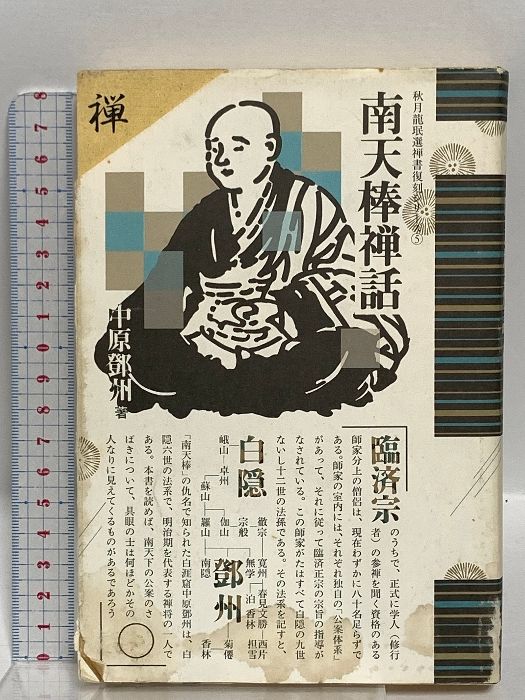 禅
秋月龍珉選禅書復刻シリーズ⑤
南天棒禅話
中原鄧州著
臨済宗のうちで、正式に学人（修行
者）の参禅を聞く資格のある
師家分上の僧侶は、現在わずかに八十名足らずで
ある。師家の室内には、それぞれ独自の「公案体系」
があって、それに従って臨済正宗の宗旨の指導が
なされている。この師家がたはすべて白隠の九世
ないし十二世の法孫である。その法系を記すと、
白隠
峨山
卓州
蘇山
羅山
伽山
宗般
南隠
徹宗
無学
寛州
春見文勝
西片担雪
泊
香林
菊僊
香林
鄧州
「南天棒」の仇名で知られた白涯窟中原鄧州は、白
隠六世の法系で、明治期を代表する禅将の一人で
ある。本書を読めば、南天下の公案のさ
ばきについて、具眼の士は何ほどかその
人なりに見えてくるものがあるであろう
8
7
6
5
4
3
2
1
90
9
8
7
6
5
4
3
2
1
0